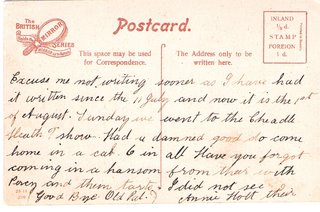 The
BRITISH
MIRROR
SERIES
Postcard.
This space may be used
for Correspondence.
The Address only to be
written here.
INLAND
½d.
STAMP
FOREIGN
1d.
Excuse me not writing sooner as I have had
it written since the 11 July and now it is the 1st
of August. Sunday we went to the Cheadle
Heath show. Had a damned good do come
home in a cab 6 in all Have you forgot
coming in a hansom from their with
Percy and them tarts. I did not see
Good Bye Old Pal Annie Holt their